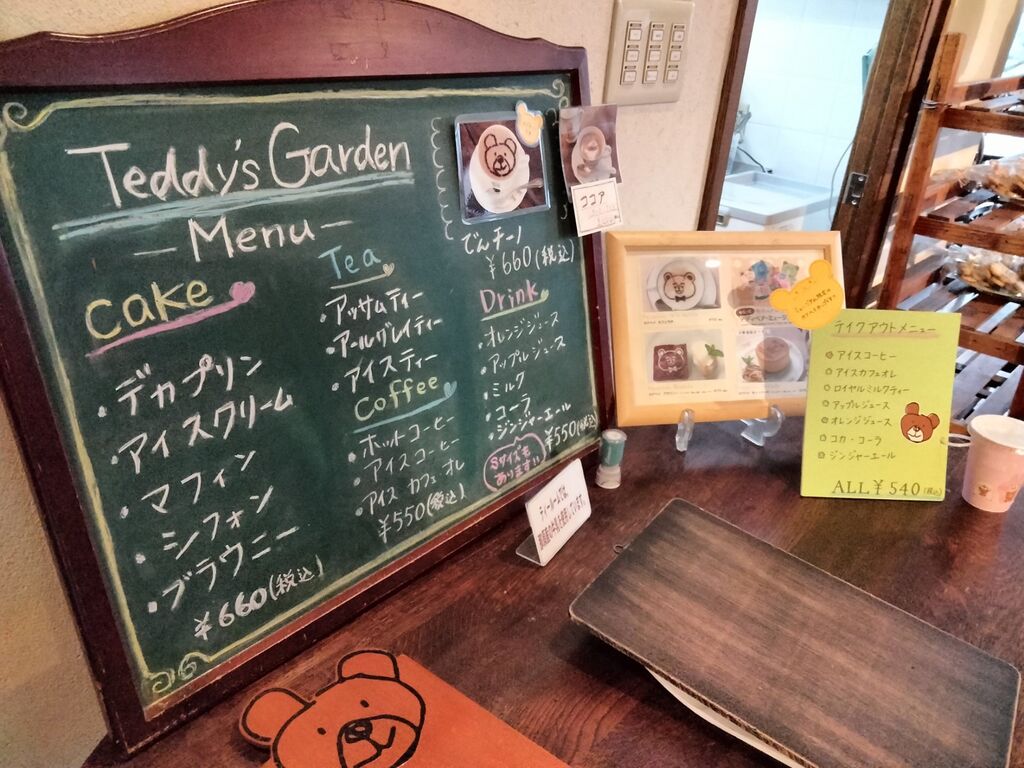 Teddy's Garden
Menu
cake
・デカプリン
・アイスクリーム
・マフィン
・シフォン
・ブラウニー
¥660(税込)
Tea
・アッサムティー
・アールグレイティー
・アイスティー
coffee
・ホットコーヒー
・アイスコーヒー
・アイスカフェオレ
¥550(税込)
でんチーノ
¥660(税込)
Drink
・オレンジジュース
・アップルジュース
・ミルク
・コーラ
・ジンジャーエール
¥550(税込)
Sサイズも
あります
ココア
ティールームでは、
テイクアウトメニュー
アイスコーヒー
アイスカフェオレ
ロイヤルミルクティー
アップルジュース
オレンジジュース
コカ・コーラ
ジンジャーエール
ALL ¥540(税込)